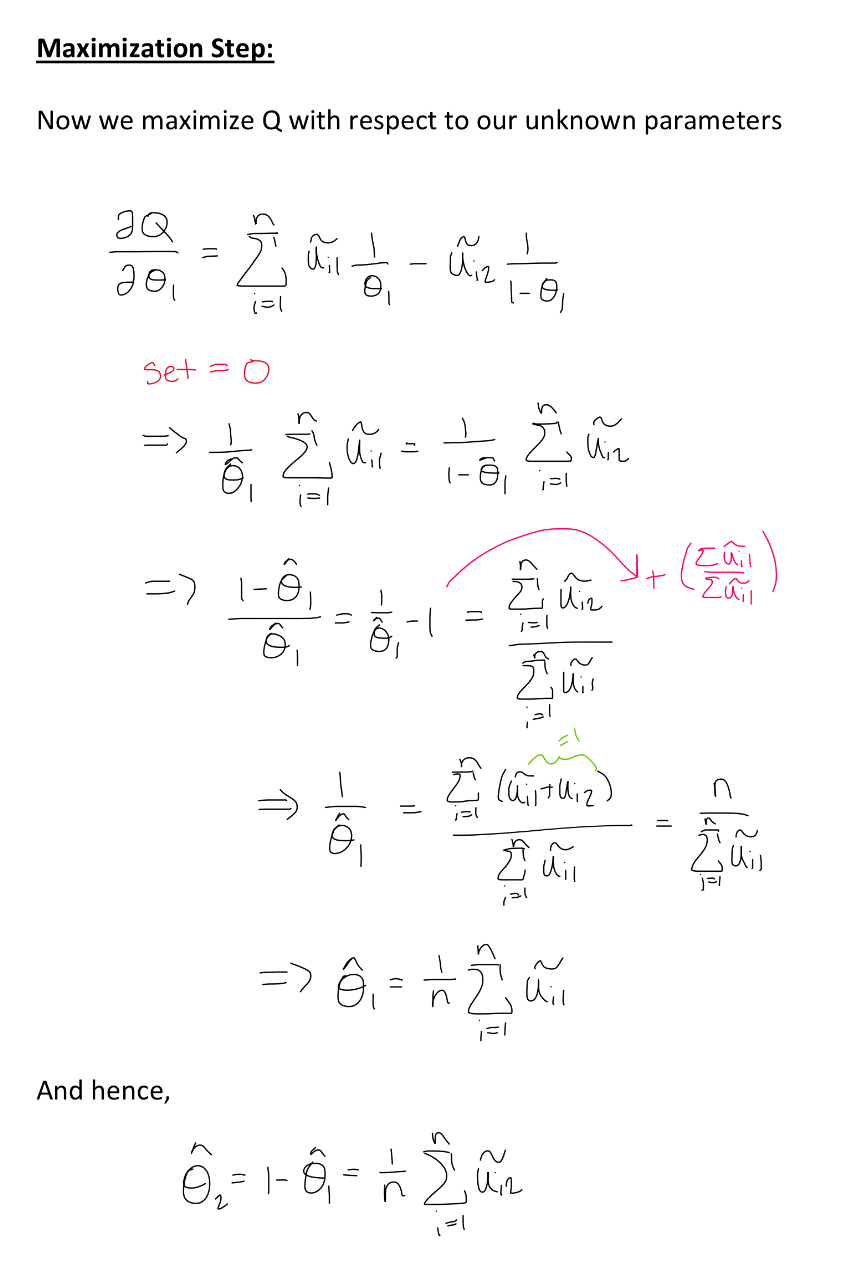 Maximization Step:
Now we maximize Q with respect to our unknown parameters
∂Q/∂θ₁ = Σ_{i=1}^{n} ũ_{i1} 1/θ₁ - ũ_{i2} 1/(1-θ₁)
set = 0
=> 1/θ̂₁ Σ_{i=1}^{n} ũ_{i1} = 1/(1-θ̂₁) Σ_{i=1}^{n} ũ_{i2}
=> (1-θ̂₁)/θ̂₁ = 1/θ̂₁ - 1 = (Σ_{i=1}^{n} ũ_{i2})/(Σ_{i=1}^{n} ũ_{i1}) + (Σũ_{i1}/Σũ_{i1})
=1
=> 1/θ̂₁ = (Σ_{i=1}^{n} (ũ_{i1}+u_{i2}))/(Σ_{i=1}^{n} ũ_{i1}) = n/(Σ_{j=1}^{n} ũ_{i1})
=> θ̂₁ = 1/n Σ_{i=1}^{n} ũ_{i1}
And hence,
θ̂₂ = 1-θ̂₁ = 1/n Σ_{i=1}^{n} ũ_{i2}